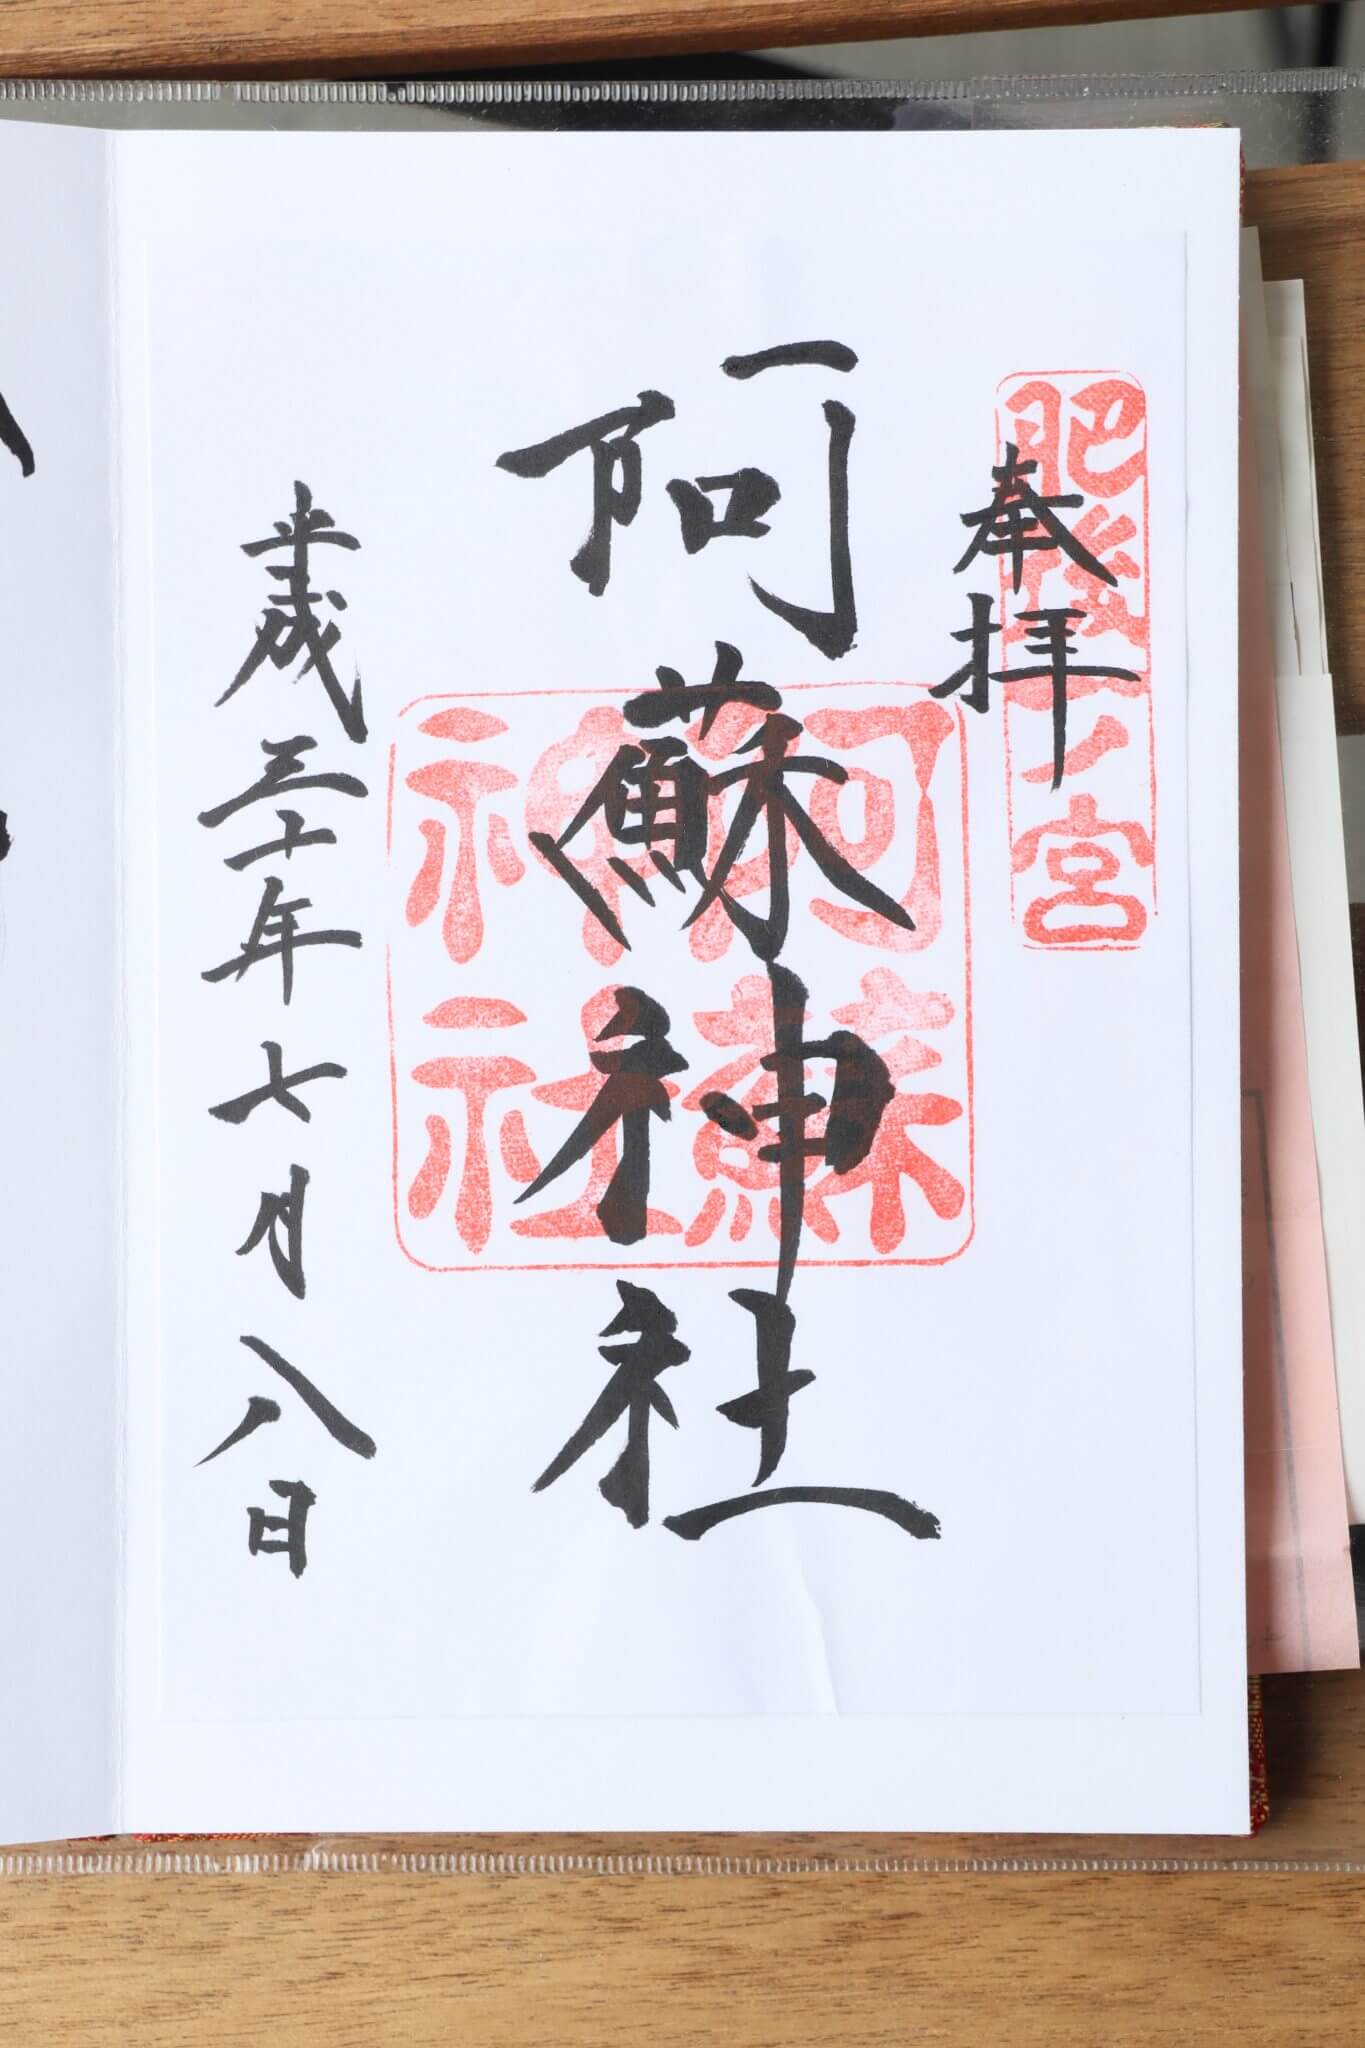 奉拝
肥後一ノ宮
阿蘇神社
阿蘇神社
平成三十年七月八日